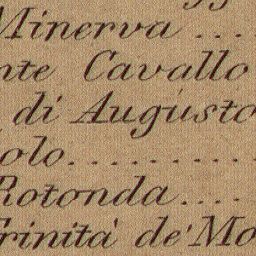 Minerva ....
nte Cavallo
di Augusto
olo..........
Rotonda....
Trinità de' Mo